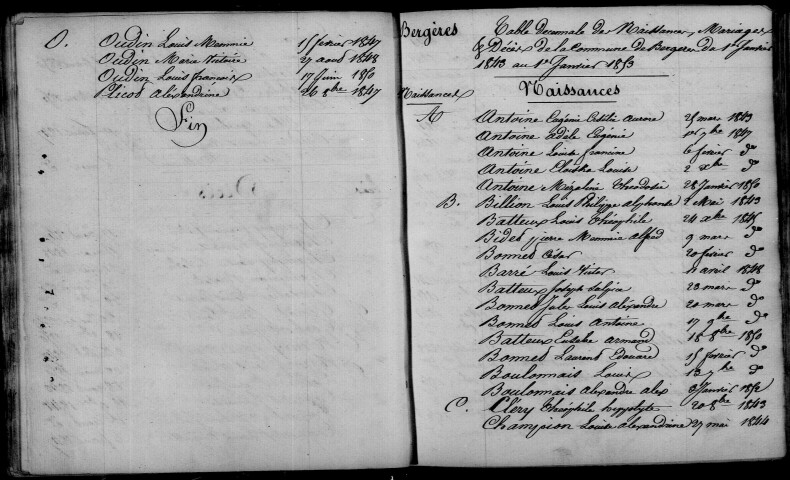 O. Oudin Louis Memmie 15 fevrier 1847
Oudin Marie Victoire 27 aout 1848
Oudin Louis francois 17 Juin 1850
Plicot Alexandrine 26 8bre 1847
Fin
Bergères
Table Decennale des Naissances, Mariages
& Décès de la Commune de Bergeres du 1er Janvier
1843 au 1er Janvier 1853
Naissances
Naissances
A Antoine Eugénie Aurore 25 mars 1843
Antoine adèle Eugénie 7bre 1847
Antoine Louise francine 6 fevrier do
Antoine Louise 2 do
Antoine Theodosie 28 Janvier 1850
B. Billion Louis Philippe alphonse 1 Mai 1843
Batteux Louis Théophile 24 1845
Bidet pierre Memmie alfred 9 mars do
Bonnet César 20 fevrier do
Barré Louis Victor 11 avril 1848
Batteux Joseph 23 mars do
Bonnet Jules Louis aléxandre 20 mars do
Bonnet Louis Antoine 17 9bre do
Batteux Eusebe armand 18 8bre 1850
Bonnet Laurent Edouard 15 fevrier do
Boulonnais Louis 12 7bre do
Boulonnais alexandre alex 3 Janvier 1852
C. Cléry Théophile hyppolyte 20 8bre 1843
Champion Louise alexandrine 27 mai 1844